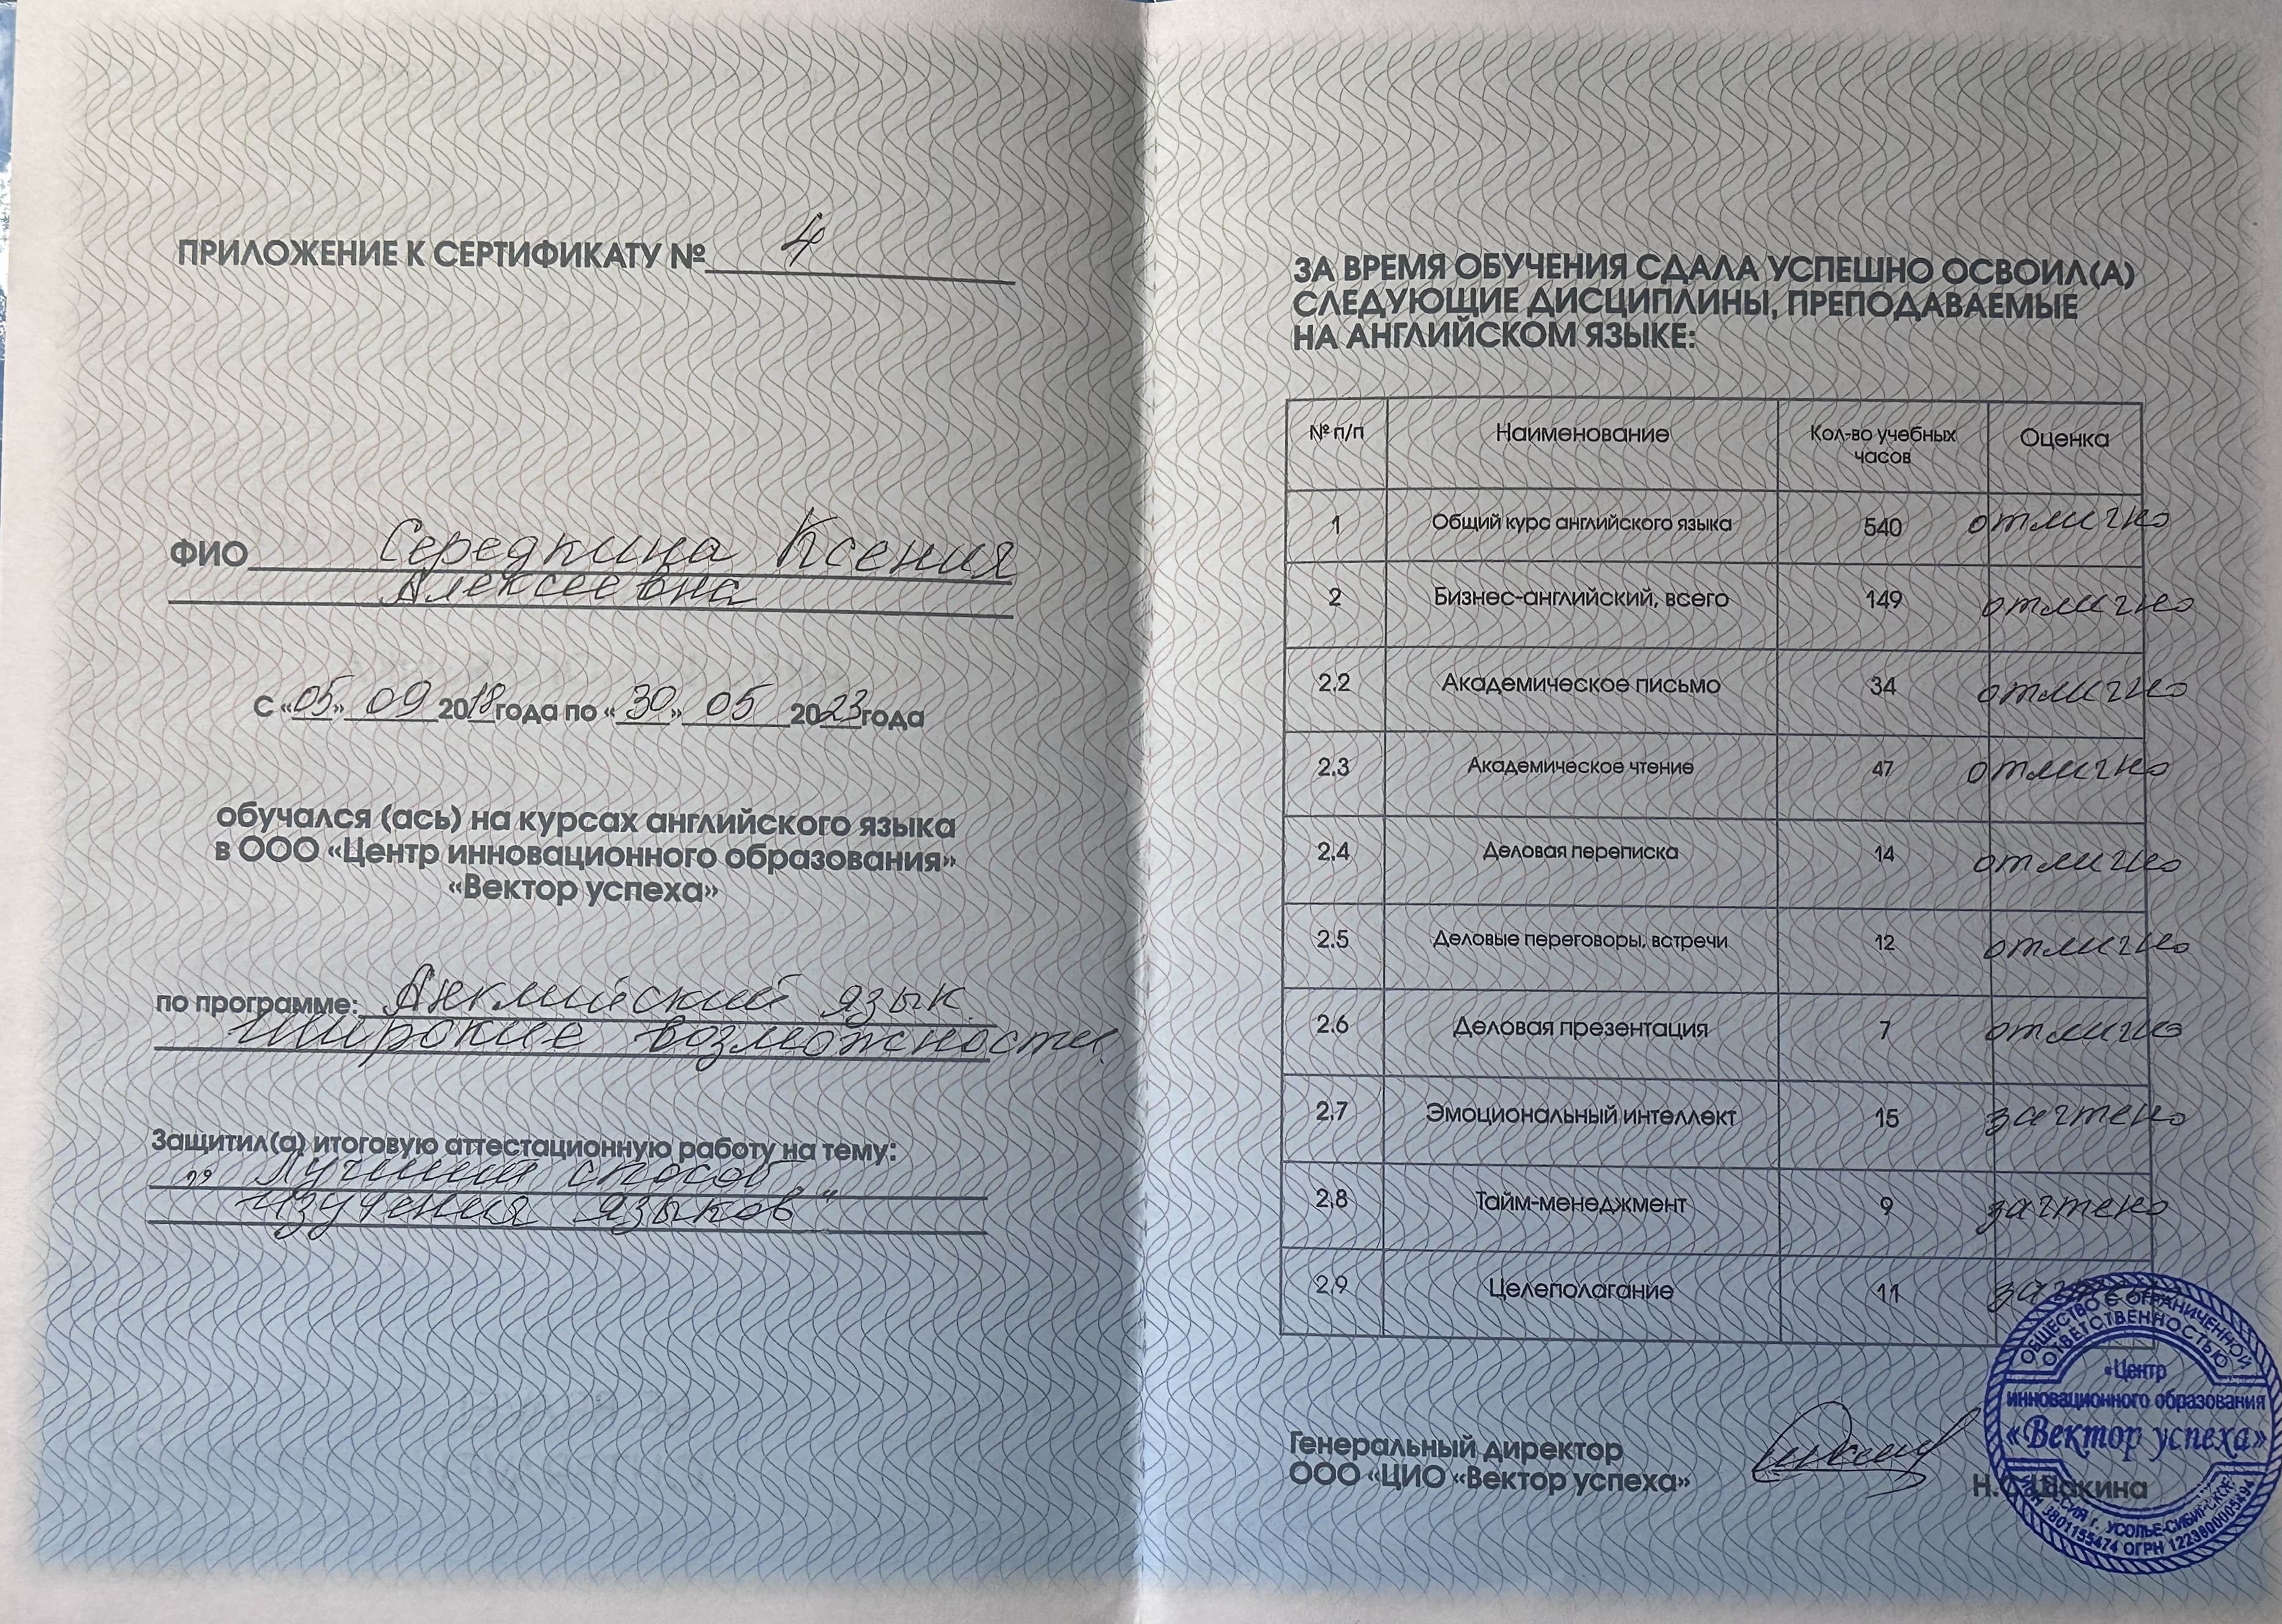 ПРИЛОЖЕНИЕ К СЕРТИФИКАТУ № 4
ФИО Середкина Ксения
Алексеевна
С «05» 09 2018 года по «30» 05 2023 года
обучался (ась) на курсах английского языка
в ООО «Центр инновационного образования»
«Вектор успеха»
по программе: Английский язык.
Широкие возможности.
Защитил(а) итоговую аттестационную работу на тему:
„ Лучший способ
изучения языков“
ЗА ВРЕМЯ ОБУЧЕНИЯ СДАЛА УСПЕШНО ОСВОИЛ(А)
СЛЕДУЮЩИЕ ДИСЦИПЛИНЫ, ПРЕПОДАВАЕМЫЕ
НА АНГЛИЙСКОМ ЯЗЫКЕ:
№ п/п Наименование Кол-во учебных часов Оценка
1 Общий курс английского языка 540 отлично
2 Бизнес-английский, всего 149 отлично
2.2 Академическое письмо 34 отлично
2.3 Академическое чтение 47 отлично
2.4 Деловая переписка 14 отлично
2.5 Деловые переговоры, встречи 12 отлично
2.6 Деловая презентация 7 отлично
2.7 Эмоциональный интеллект 15 зачтено
2.8 Тайм-менеджмент 9 зачтено
2.9 Целеполагание 11 зачтено
Генеральный директор
ООО «ЦИО «Вектор успеха»
ОБЩЕСТВО С ОГРАНИЧЕННОЙ
ОТВЕТСТВЕННОСТЬЮ
«Центр
инновационного образования
«Вектор успеха»
г. УСОЛЬЕ-СИБИРСКОЕ
ИНН 3801155474 ОГРН